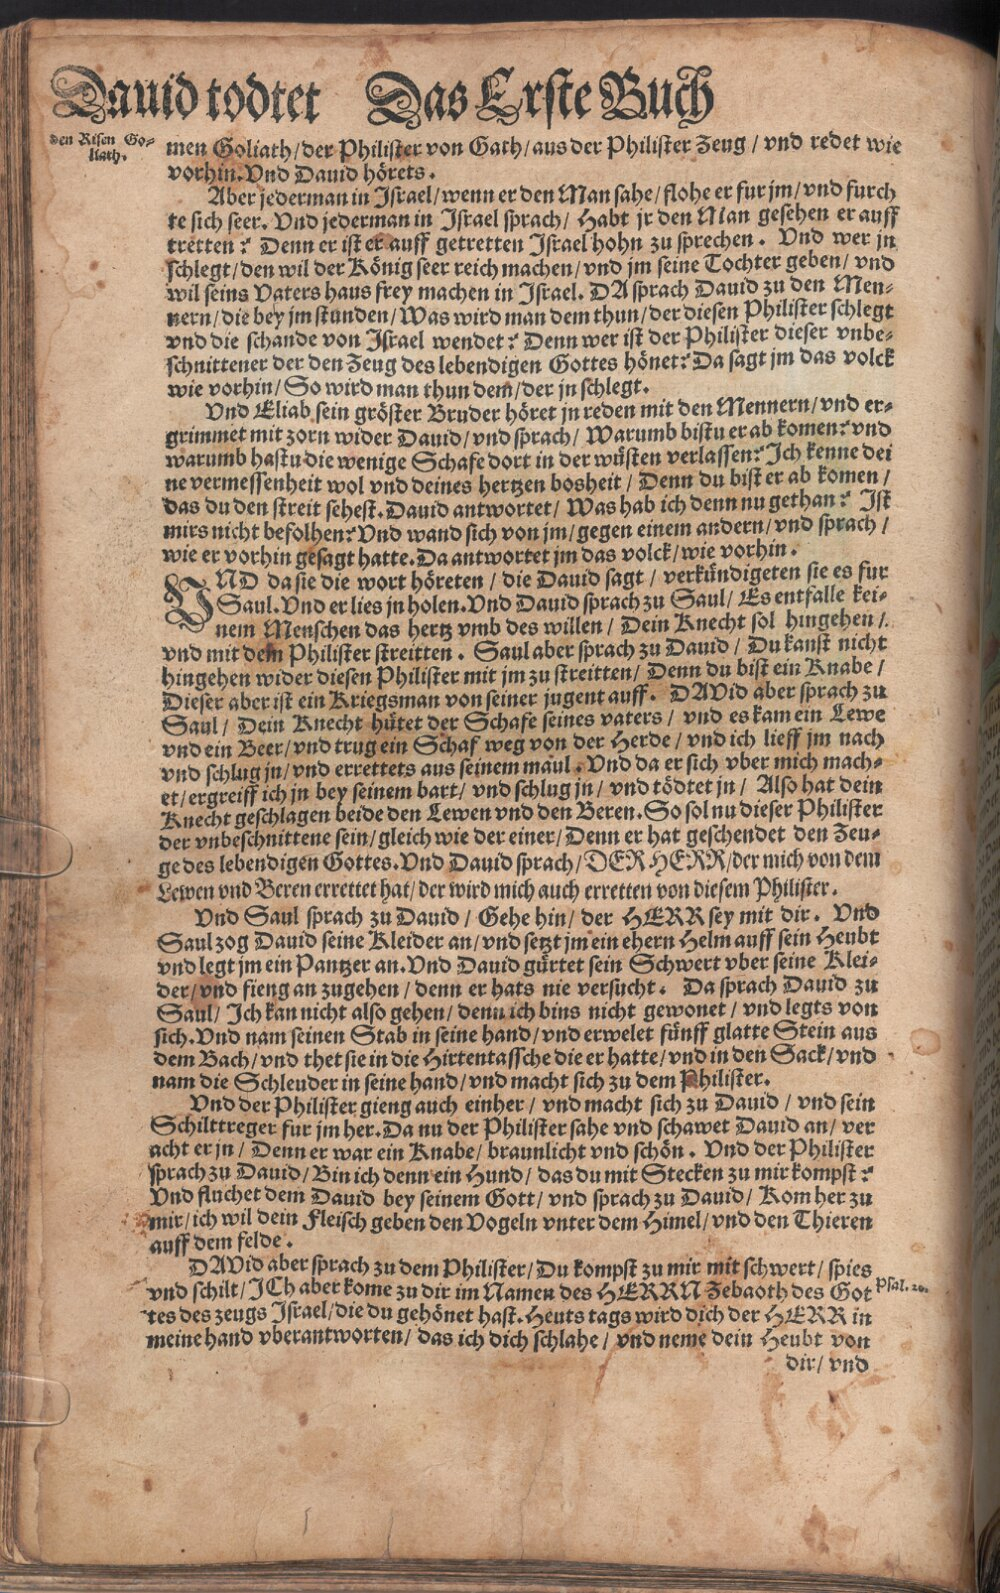 Dauid todtet Das Erste Buch
den Risen Go-
liath.
men Goliath/der Philister von Gath/aus der Philister Zeug/vnd redet wie
vorhin.Vnd Dauid hörets.
Aber jederman in Israel/wenn er den Man sahe/flohe er fur jm/vnd furch
te sich seer. Vnd jederman in Israel sprach/Habt jr den Man gesehen er auff
tretten? Denn er ist er auff getretten Israel hohn zu sprechen. Vnd wer jn
schlegt/den wil der König seer reich machen/vnd jm seine Tochter geben/vnd
wil seins Vaters haus frey machen in Israel. DA sprach Dauid zu den Men-
nern/die bey jm stunden/Was wird man dem thun/der diesen Philister schlegt
vnd die schande von Israel wendet? Denn wer ist der Philister dieser vnbe-
schnittener der den Zeug des lebendigen Gottes hönet? Da sagt jm das volck
wie vorhin/So wird man thun dem/der jn schlegt.
Vnd Eliab sein gröster Bruder höret jn reden mit den Mennern/vnd er-
grimmet mit zorn wider Dauid/vnd sprach/Warumb bistu er ab komen? vnd
warumb hastu die wenige Schafe dort in der wüsten verlassen? Ich kenne dei
ne vermessenheit wol vnd deines hertzen bosheit/Denn du bist er ab komen/
das du den streit sehest.Dauid antwortet/Was hab ich denn nu gethan? Ist
mirs nicht befolhen? Vnd wand sich von jm/gegen einem andern/vnd sprach/
wie er vorhin gesagt hatte.Da antwortet jm das volck/wie vorhin.
VND da sie die wort höreten/die Dauid sagt/verkündigeten sie es fur
Saul.Vnd er lies jn holen.Vnd Dauid sprach zu Saul/Es entfalle kei-
nem Menschen das hertz vmb des willen/Dein Knecht sol hingehen/
vnd mit dem Philister streitten. Saul aber sprach zu Dauid/Du kanst nicht
hingehen wider diesen Philister mit jm zu streitten/Denn du bist ein Knabe/
Dieser aber ist ein Kriegsman von seiner jugent auff. DAVid aber sprach zu
Saul/Dein Knecht hütet der Schafe seines vaters/vnd es kam ein Lewe
vnd ein Beer/vnd trug ein Schaf weg von der Herde/vnd ich lieff jm nach
vnd schlug jn/vnd errettets aus seinem maul.Vnd da er sich vber mich mach-
et/ergreiff ich jn bey seinem bart/vnd schlug jn/vnd tödtet jn/Also hat dein
Knecht geschlagen beide den Lewen vnd den Beren.So sol nu dieser Philister
der vnbeschnittene sein/gleich wie der einer/Denn er hat geschendet den Zeu-
ge des lebendigen Gottes.Vnd Dauid sprach/DER HERR/der mich von dem
Lewen vnd Beren errettet hat/der wird mich auch erretten von diesem Philister.
Vnd Saul sprach zu Dauid/Gehe hin/der HERR sey mit dir. Vnd
Saul zog Dauid seine Kleider an/vnd setzt jm ein ehern Helm auff sein Heubt
vnd legt jm ein Pantzer an.Vnd Dauid gürtet sein Schwert vber seine Klei-
der/vnd fieng an zugehen/denn er hats nie versucht. Da sprach Dauid zu
Saul/Ich kan nicht also gehen/denn ich bins nicht gewonet/vnd legts von
sich.Vnd nam seinen Stab in seine hand/vnd erwelet fünff glatte Stein aus
dem Bach/vnd thet sie in die Hirtentassche die er hatte/vnd in den Sack/vnd
nam die Schleuder in seine hand/vnd macht sich zu dem Philister.
Vnd der Philister gieng auch einher/vnd macht sich zu Dauid/vnd sein
Schilttreger fur jm her.Da nu der Philister sahe vnd schawet Dauid an/ver
acht er jn/Denn er war ein Knabe/braunlicht vnd schön. Vnd der Philister
sprach zu Dauid/Bin ich denn ein Hund/das du mit Stecken zu mir kompst?
Vnd fluchet dem Dauid bey seinem Gott/vnd sprach zu Dauid/Kom her zu
mir/ich wil dein Fleisch geben den Vogeln vnter dem Himel/vnd den Thieren
auff dem felde.
DAVid aber sprach zu dem Philister/Du kompst zu mir mit schwert/spies
vnd schilt/ICh aber kome zu dir im Namen des HERRN Zebaoth des Got
Psal. 20.
tes des zeugs Israel/die du gehönet hast.Heuts tags wird dich der HERR in
meine hand vberantworten/das ich dich schlahe/vnd neme dein Heubt von
dir/vnd